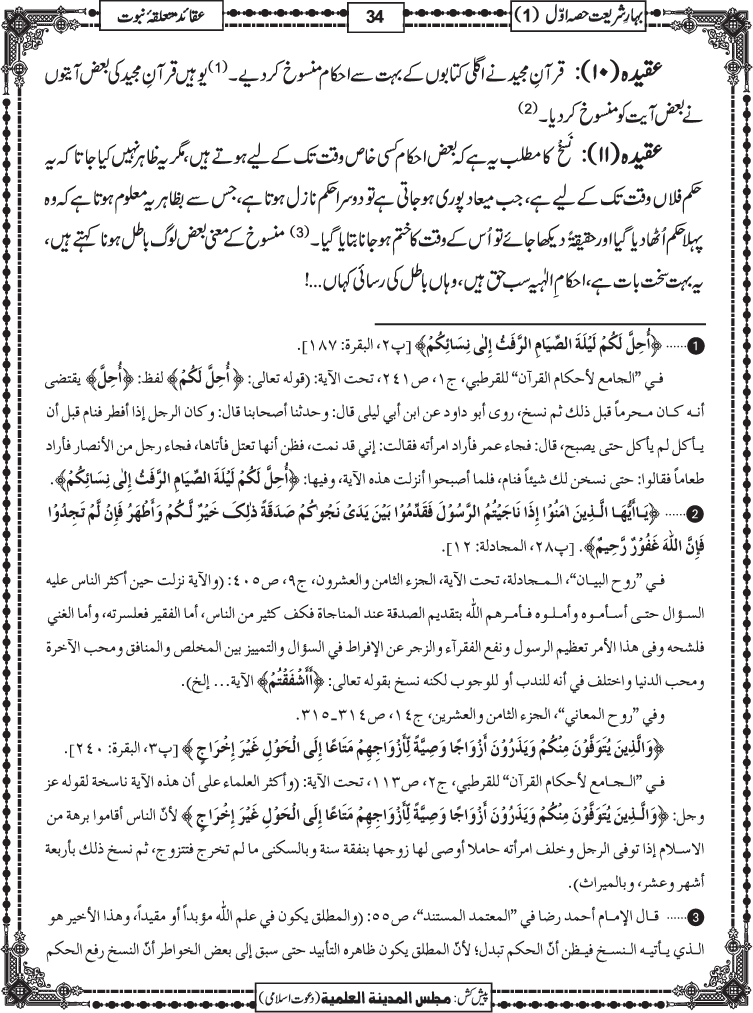 بہارِ شریعت حصہ اوّل (1)
34
عقائد متعلقۂ نبوت
عقیدہ (۱۰): قرآنِ مجید نے اگلی کتابوں کے بہت سے احکام منسوخ کردیے۔(1) یوہیں قرآنِ مجید کی بعض آیتوں
نے بعض آیت کو منسوخ کر دیا۔(2)
عقیدہ (۱۱): نَسْخ کا مطلب یہ ہے کہ بعض احکام کسی خاص وقت تک کے لیے ہوتے ہیں، مگر یہ ظاہر نہیں کیا جاتا کہ یہ
حکم فلاں وقت تک کے لیے ہے، جب میعاد پوری ہوجاتی ہے تو دوسرا حکم نازل ہوتا ہے، جس سے بظاہر یہ معلوم ہوتا ہے کہ وہ
پہلا حکم اُٹھا دیا گیا اور حقیقۃً دیکھا جائے تو اُس کے وقت کا ختم ہوجانا بتایا گیا۔(3) منسوخ کے معنی بعض لوگ باطل ہونا کہتے ہیں،
یہ بہت سخت بات ہے، احکامِ الٰہیہ سب حق ہیں، وہاں باطل کی رسائی کہاں...!
1 ...... ﴿أُحِلَّ لَكُمْ لَيْلَةَ الصِّيَامِ الرَّفَثُ إِلٰى نِسَائِكُمْ﴾ [پ٢، البقرة: ١٨٧].
في ”الجامع لأحكام القرآن“ للقرطبي، ج١، ص٢٤١، تحت الآية: (قوله تعالى: ﴿ أُحِلَّ لَكُمْ﴾ لفظ: ﴿أُحِلَّ﴾ يقتضى
أنه كان محرماً قبل ذلك ثم نسخ، روى أبو داود عن ابن أبي ليلى قال: وحدثنا أصحابنا قال: وكان الرجل إذا أفطر فنام قبل أن
يأكل لم يأكل حتى يصبح، قال: فجاء عمر فأراد امرأته فقالت: إني قد نمت، فظن أنها تعتل فأتاها، فجاء رجل من الأنصار فأراد
طعاماً فقالوا: حتى نسخن لك شيئاً فنام، فلما أصبحوا أنزلت هذه الآية، وفيها: ﴿أُحِلَّ لَكُمْ لَيْلَةَ الصِّيَامِ الرَّفَثُ إِلٰى نِسَائِكُمْ﴾.
2 ...... ﴿يَـاأَيُّهَـا الَّـذِينَ اٰمَنُوْا إِذَا نَاجَيْتُمُ الرَّسُوْلَ فَقَدِّمُوْا بَيْنَ يَدَىْ نَجْوٰكُمْ صَدَقَةً ذٰلِكَ خَيْرٌ لَّكُمْ وَأَطْهَرُ فَإِنْ لَّمْ تَجِدُوْا
فَإِنَّ اللّٰهَ غَفُوْرٌ رَّحِيمٌ﴾. [پ٢٨، المجادلة: ١٢].
في ”روح البيان“، المجادلة، تحت الآية، الجزء الثامن والعشرون، ج٩، ص٤٠٥: (والآية نزلت حين أكثر الناس عليه
السؤال حتى أسأموه وأملوه فأمرهم الله بتقديم الصدقة عند المناجاة فكف كثير من الناس، أما الفقير فعلسرته، وأما الغني
فلشحه وفى هذا الأمر تعظيم الرسول ونفع الفقرآء والزجر عن الإفراط في السؤال والتمييز بين المخلص والمنافق ومحب الآخرة
ومحب الدنيا واختلف في أنه للندب أو للوجوب لكنه نسخ بقوله تعالى: ﴿أَأَشْفَقْتُمْ﴾ الآية... إلخ).
وفي ”روح المعاني“، الجزء الثامن والعشرين، ج١٤، ص٣١٤ـ٣١٥.
﴿وَالَّذِينَ يُتَوَفَّوْنَ مِنْكُمْ وَيَذَرُوْنَ أَزْوَاجًا وَصِيَّةً لِّأَزْوَاجِهِمْ مَتَاعًا إِلَى الْحَوْلِ غَيْرَ إِخْرَاجٍ ﴾ [پ٣، البقرة: ٢٤٠].
في ”الجامع لأحكام القرآن“ للقرطبي، ج٢، ص١١٣، تحت الآية: (وأكثر العلماء على أن هذه الآية ناسخة لقوله عز
وجل: ﴿وَالَّـذِينَ يُتَوَفَّوْنَ مِنْكُمْ وَيَذَرُوْنَ أَزْوَاجًا وَصِيَّةً لِّأَزْوَاجِهِمْ مَتَاعًا إِلَى الْحَوْلِ غَيْرَ إِخْرَاجٍ ﴾ لأنّ الناس أقاموا برهة من
الاسلام إذا توفى الرجل وخلف امرأته حاملا أوصى لها زوجها بنفقة سنة وبالسكنى ما لم تخرج فتتزوج، ثم نسخ ذلك بأربعة
أشهر وعشر، وبالميراث).
3 ...... قال الإمام أحمد رضا في ”المعتمد المستند“، ص٥٥: (والمطلق يكون في علم الله مؤبداً أو مقيداً، وهذا الأخير هو
الذي يأتيه النسخ فيظن أنّ الحكم تبدل؛ لأنّ المطلق يكون ظاهره التأبيد حتى سبق إلى بعض الخواطر أنّ النسخ رفع الحكم
پیش کش: مجلس المدينة العلمية (دعوت اسلامی)